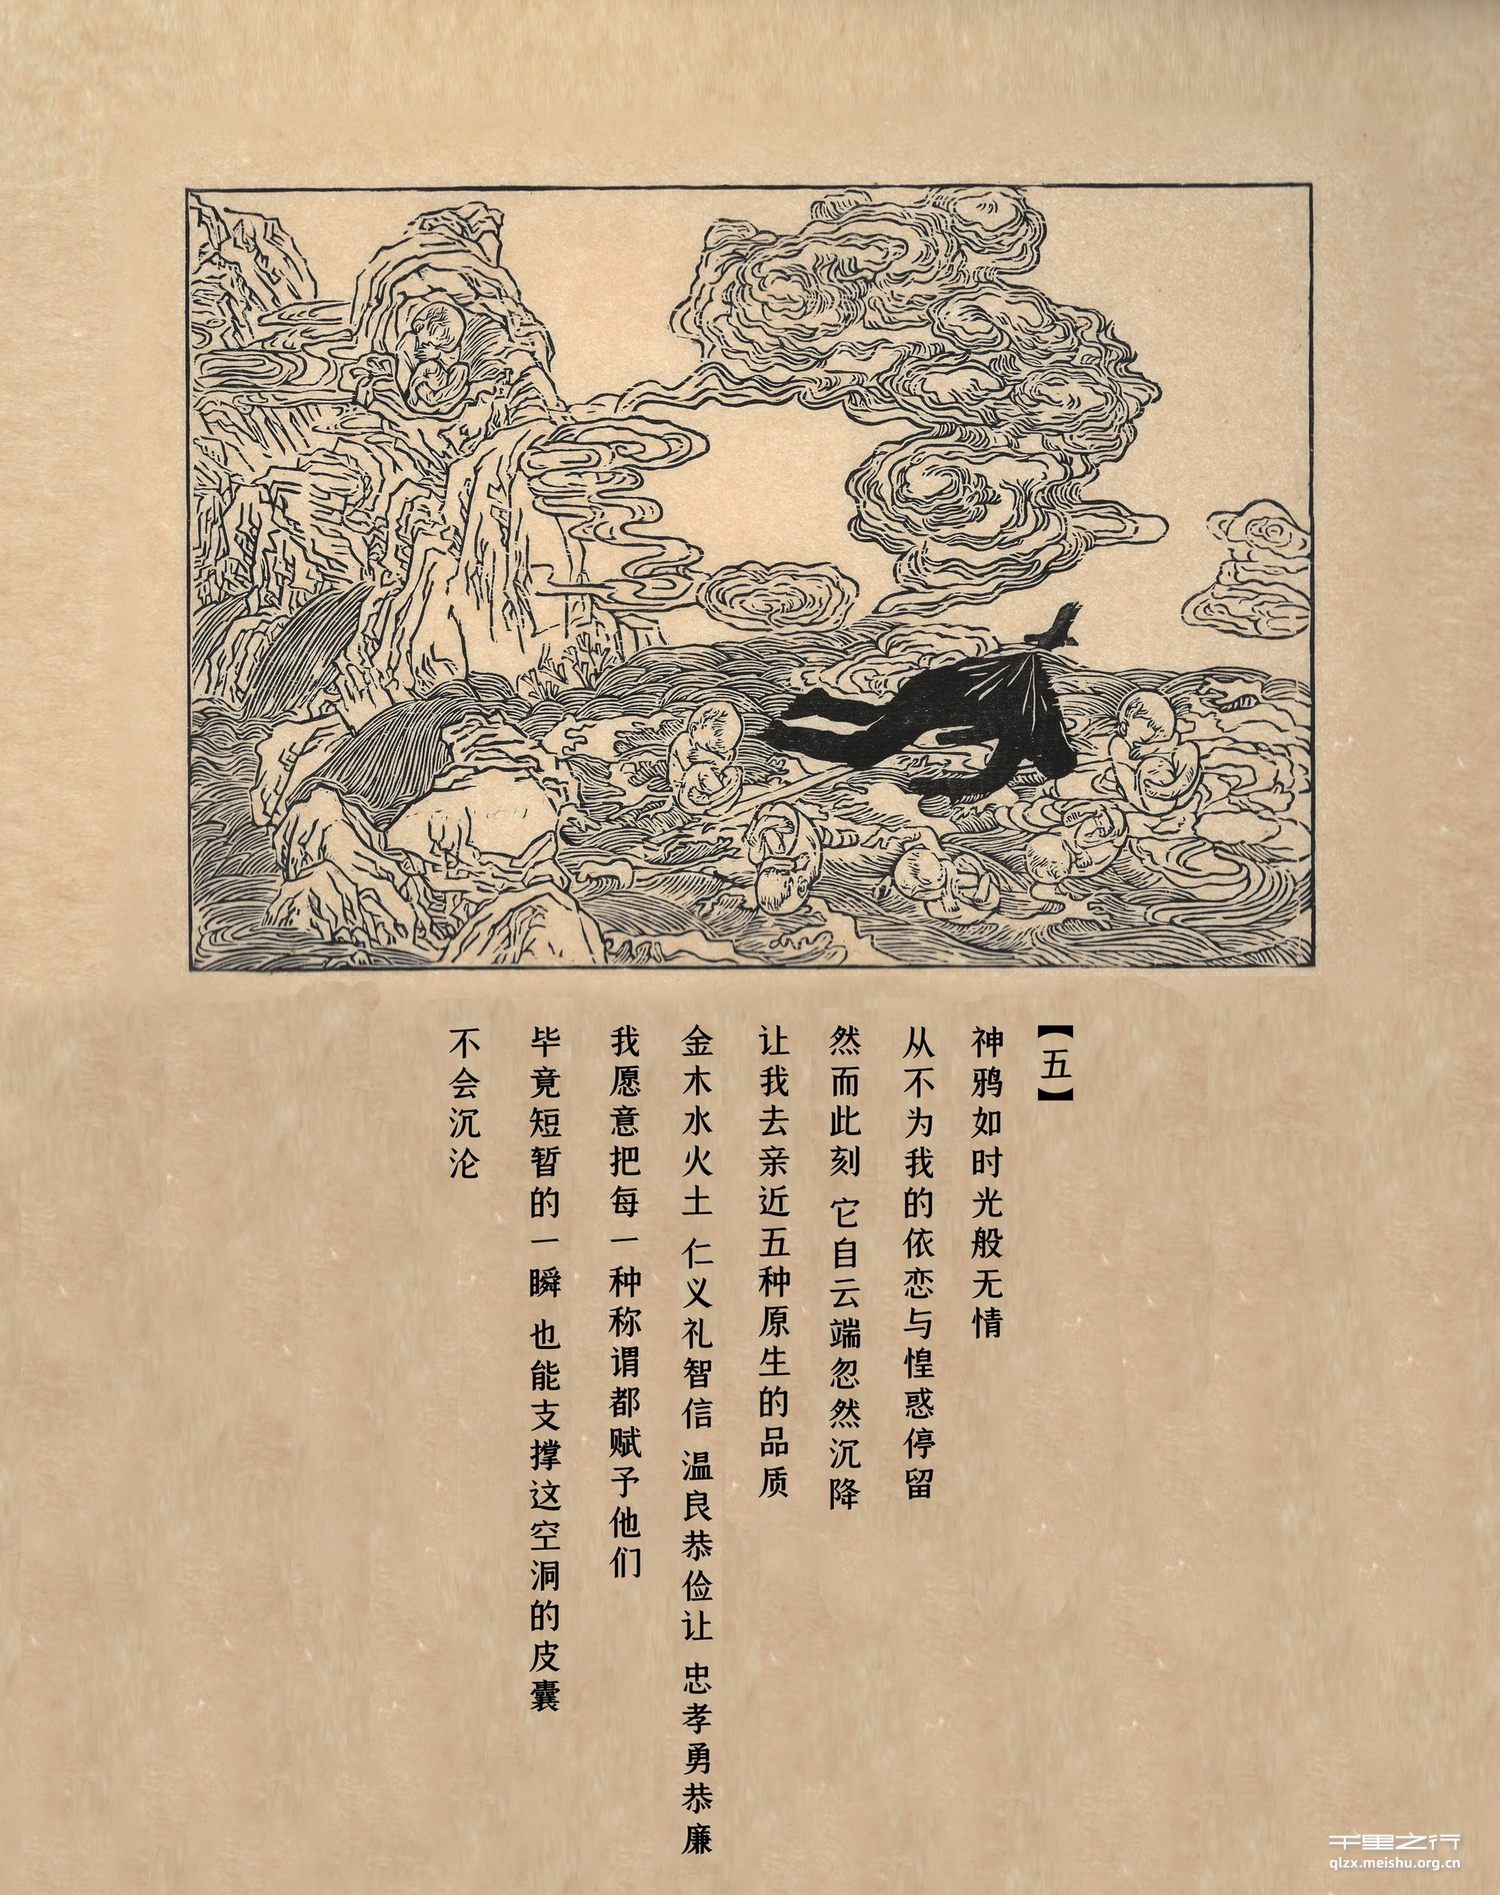 【五】
神鸦如时光般无情
从不为我的依恋与惶惑停留
然而此刻 它自云端忽然沉降
让我去亲近五种原生的品质
金木水火土 仁义礼智信 温良恭俭让 忠孝勇恭廉
我愿意把每一种称谓都赋予他们
毕竟短暂的一瞬 也能支撑这空洞的皮囊
不会沉沦
千里之行
qlzx.meishu.org.cn